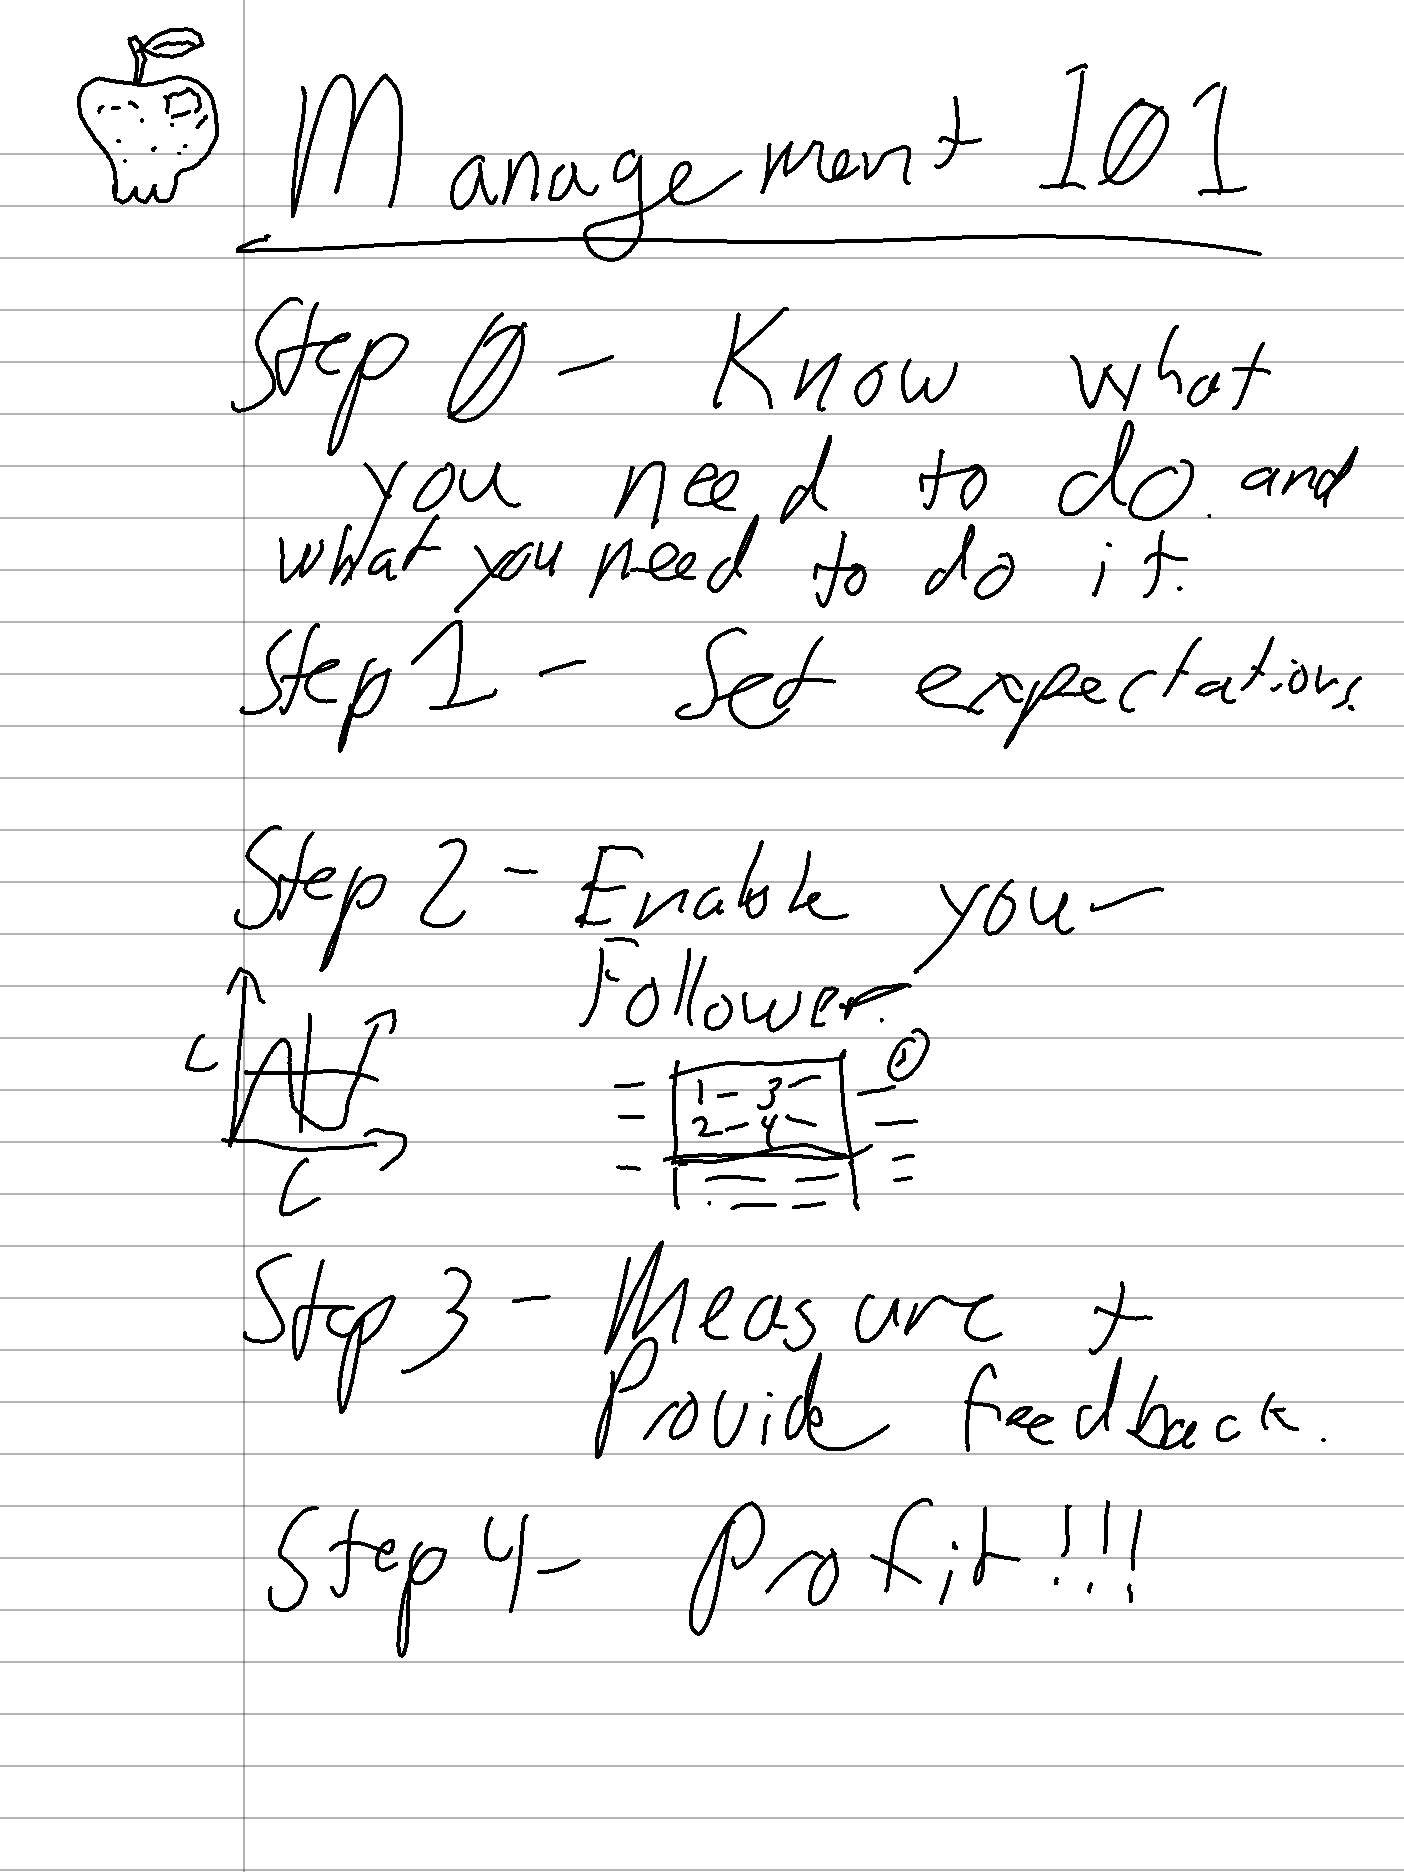 Management 101
Step 0 - Know what
you need to do. and
what you need to do it.
Step 1 - Set expectations.
Step 2 - Enable your
Follower.
C
C
1 - 3 -
2 - 4 -
Step 3 - Measure +
Provide feedback.
Step 4 - Profit!!!